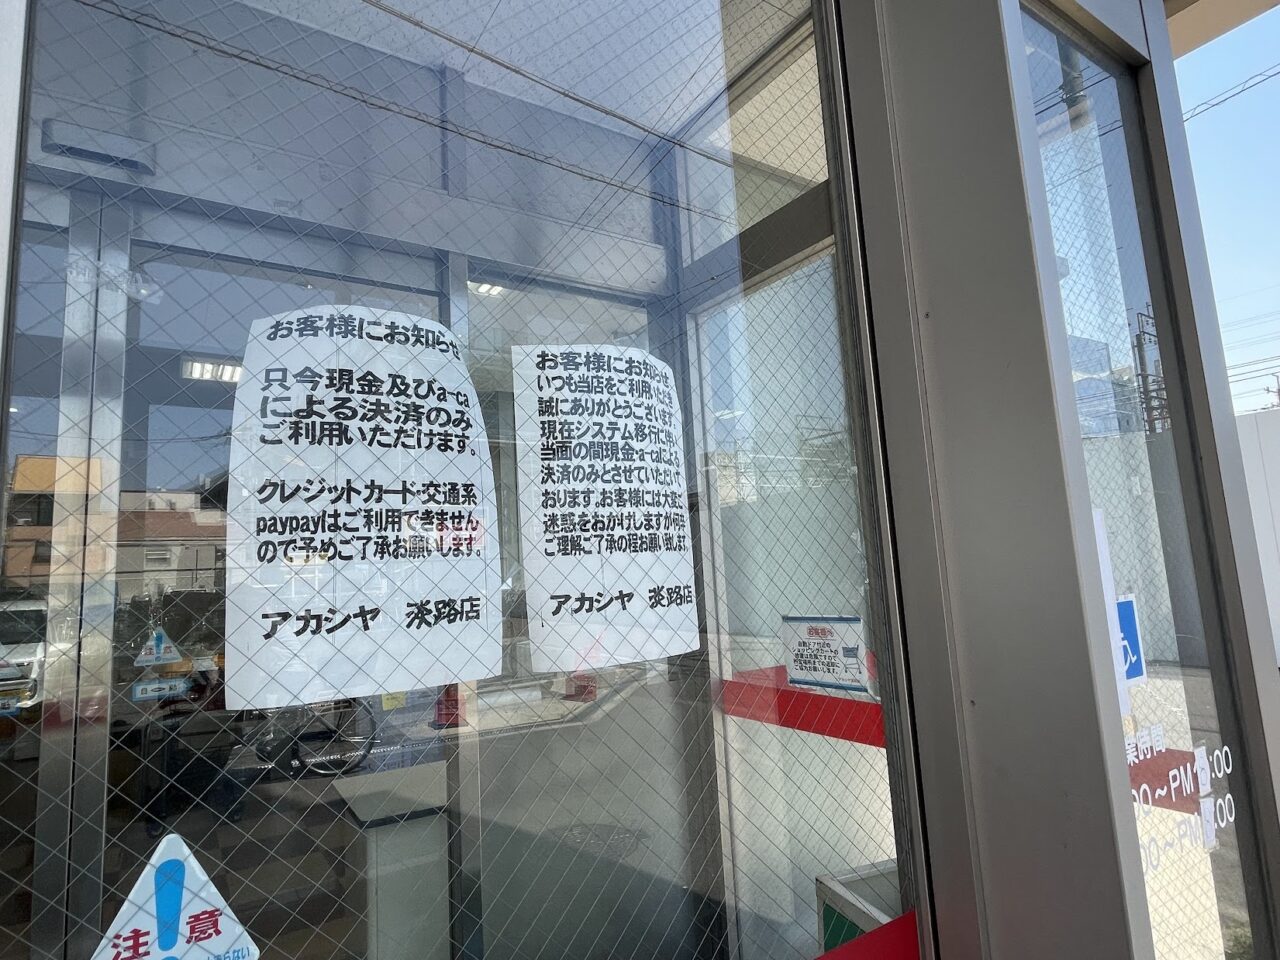 お客様にお知らせ
只今現金及びa-ca
による決済のみ
ご利用いただけます。
クレジットカード・交通系
paypayはご利用できません
ので予めご了承お願いします。
アカシヤ 淡路店
お客様にお知らせ
いつも当店をご利用いただき
誠にありがとうございます。
現在システム移行に伴い
当面の間現金・a-caによる
決済のみとさせていただいて
おります。お客様には大変ご
迷惑をおかけしますが何卒
ご理解ご了承の程お願い致します。
アカシヤ 淡路店
お客様へ
自動ドア付近の
ショッピングカートの
放置は危険ですので
ご協力お願いします。
注意
注意
業時間
00～PM :00
:00～PM :00